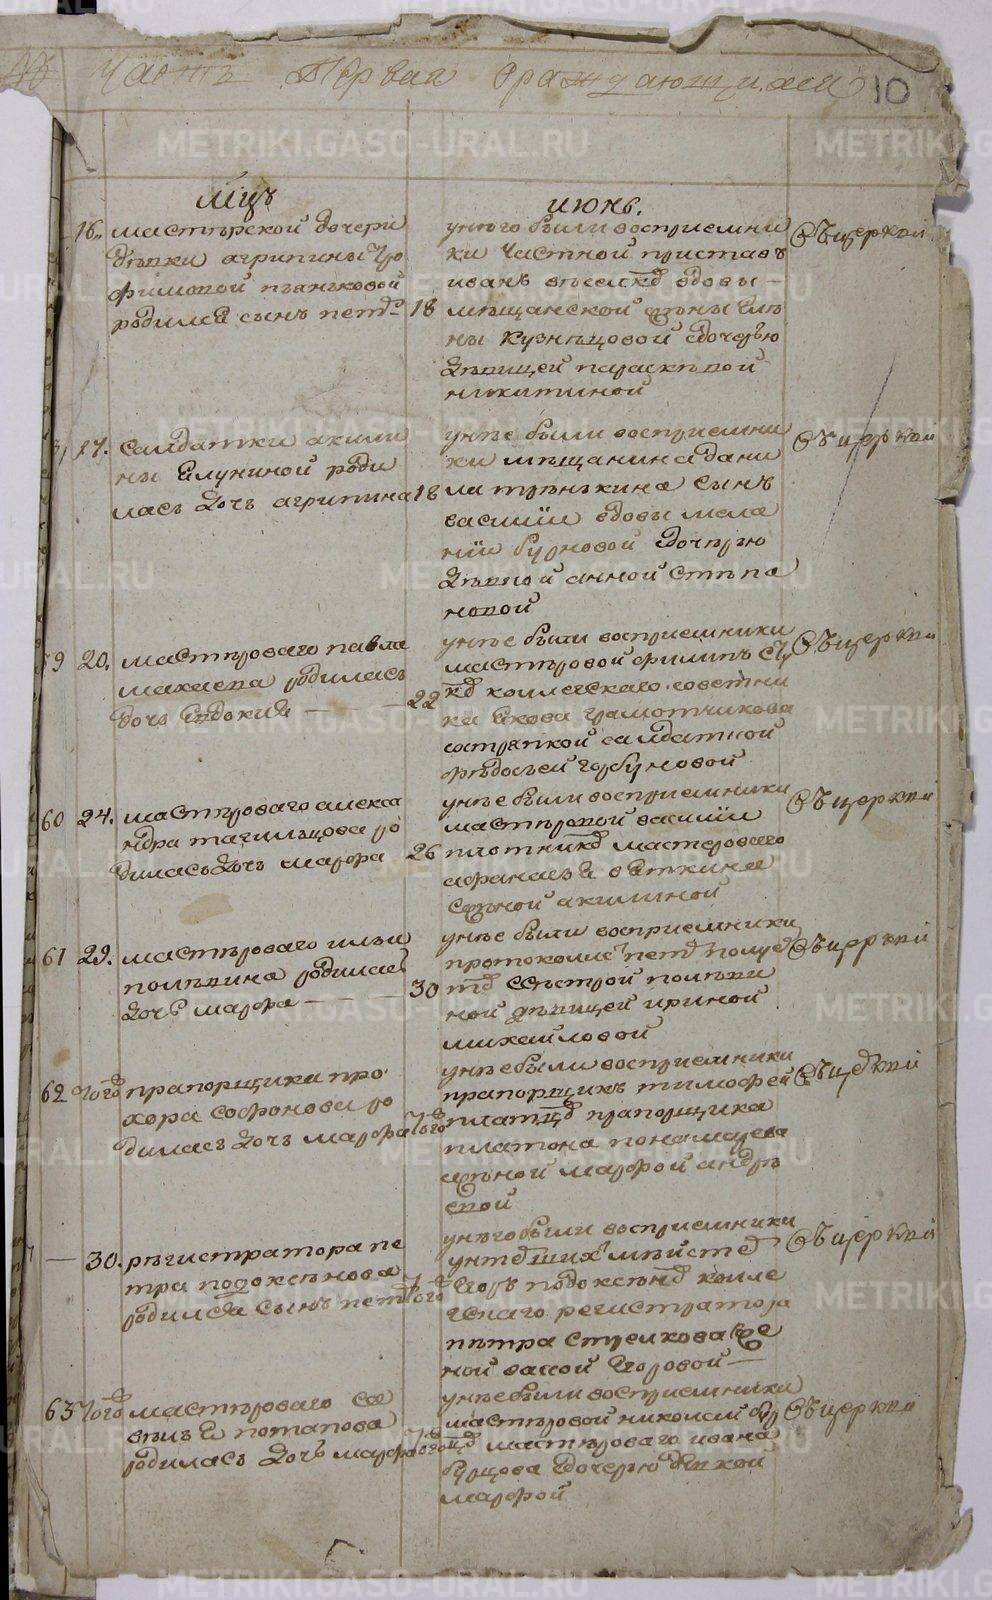 Часть Первая ораждающихся 10
мцъ июнь.
16. мастерской дочери
девки агрипины тро
фимовой пьянковой
родился сынъ петр 18
унего были восприемни
ки частной приставъ
иванъ вдовы
мещанской жены еле
ны кузнецовой дочерью
девицей параскевой
никитиной
въ церкви
17. салдатки акили
ны Елуниной роди
лась дочь агрипина 18
унее были восприемни
ки мещанина дани
ла тренькина сынъ
василiи вдовы мела
нiи бурновой дочерью
девкой анной степа
новой
въ церкви
59 20. мастероваго павла
махаева родилась
дочь Евдокия 22
унее были восприемники
мастеровой филипъ
коллежскаго советни
ка Якова грамотчикова
стряпкой салдаткой
федосьей горбуновой
въ церкви
60 24. мастероваго алекса
ндра тагильцова ро
дилась дочь марфа 26
унее были восприемники
мастеровой василiи
плотнико мастероваго
афанасья вяткина
женой акилиной
въ церкви
61 29. мастероваго ильи
полевина родилась
дочь марфа 30
унее были восприемники
протоколис петр
сестрой полеви
ной девицей ириной
михайловой
въ церкви
62 того прапорщика про
хора софонова ро
дилась дочь марфа того
унее были восприемники
прапорщикъ тимофей
прапорщика
платона пономарева
женой марфой андре
евой
въ церкви
30. регистратора пе
тра подоксенова
родился сынъ петр того
унего были восприемники
унтеръ шихтмейстер
Егоръ подоксено колле
жскаго регистратора
петра стрелкова же
ной вассой Егоровой
въ церкви
63 того мастероваго са
велья потапова
родилась дочь марфа того
унее были восприемники
мастеровой николай
мастероваго ивана
бурцова дочерью девкой
марфой
въ церкви